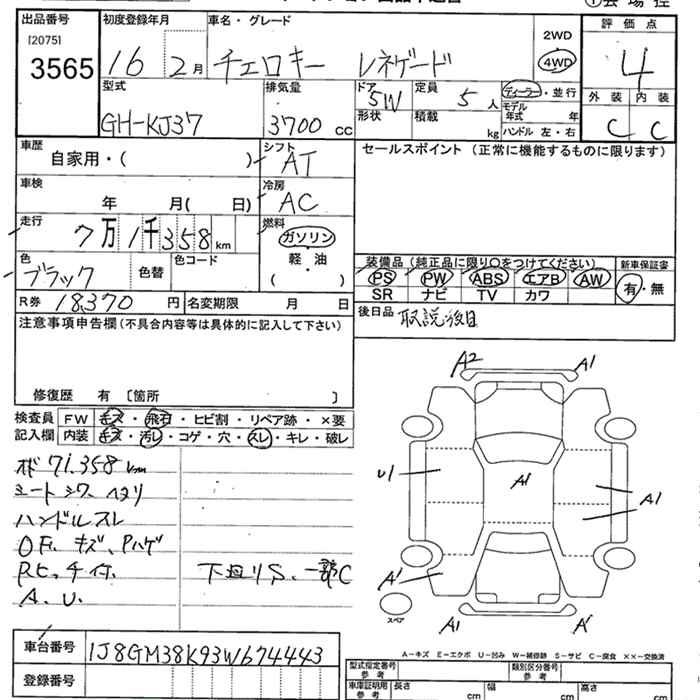 出品番号 初度登録年月 車名・グレード
[2075] 2WD 評価点
3565 16 2月 チェロキー レネゲード 4WD 4
型式 排気量 ドア 定員 ディーラー・並行 外装 内装
5W 5人 モデル年式 年
GH-KJ37 3700cc 形状 積載 kg ハンドル 左・右 C C
車歴 自家用・( ) シフト AT セールスポイント(正常に機能するものに限ります)
車検 年 月( 日) 冷房 AC
走行 7万1千358km 燃料 ガソリン
軽・油
( )
色 ブラック 色替 色コード
装備品(純正品に限り○をつけてください) 新車保証書
PS PW ABS エアB AW 有・無
SR ナビ TV カワ
R券 18370円 名変期限 月 日
後日品 取説後日
注意事項申告欄(不具合内容等は具体的に記入して下さい)
修復歴 有 [箇所 ]
検査員 FW キズ・飛石・ヒビ割・リペア跡・×要
記入欄 内装 キズ・汚レ・コゲ・穴・スレ・キレ・破レ
71.358km
シートシワ、ヘタリ
ハンドルスレ
OF、キズ、Pハゲ
下廻りS、一部C
A.U.
A2 A1
U1 A1 A1
A1
A1 A1
スペア
A-キズ E-エクボ U-凹み W-補修跡 S-サビ C-腐食 ××-交換済
車台番号 1J8GM38K93W674443
登録番号
型式指定番号 参考 類別区分番号 参考
車庫証明用 参考 長さ cm 幅 cm 高さ cm